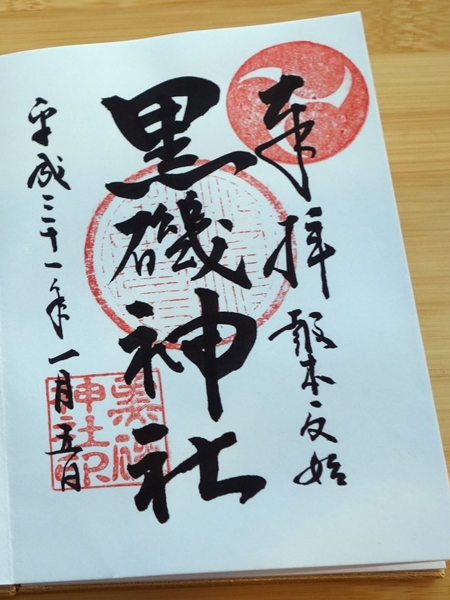 奉拝
報本反始
黒磯神社
平成三十一年一月五日
黒磯
神社印